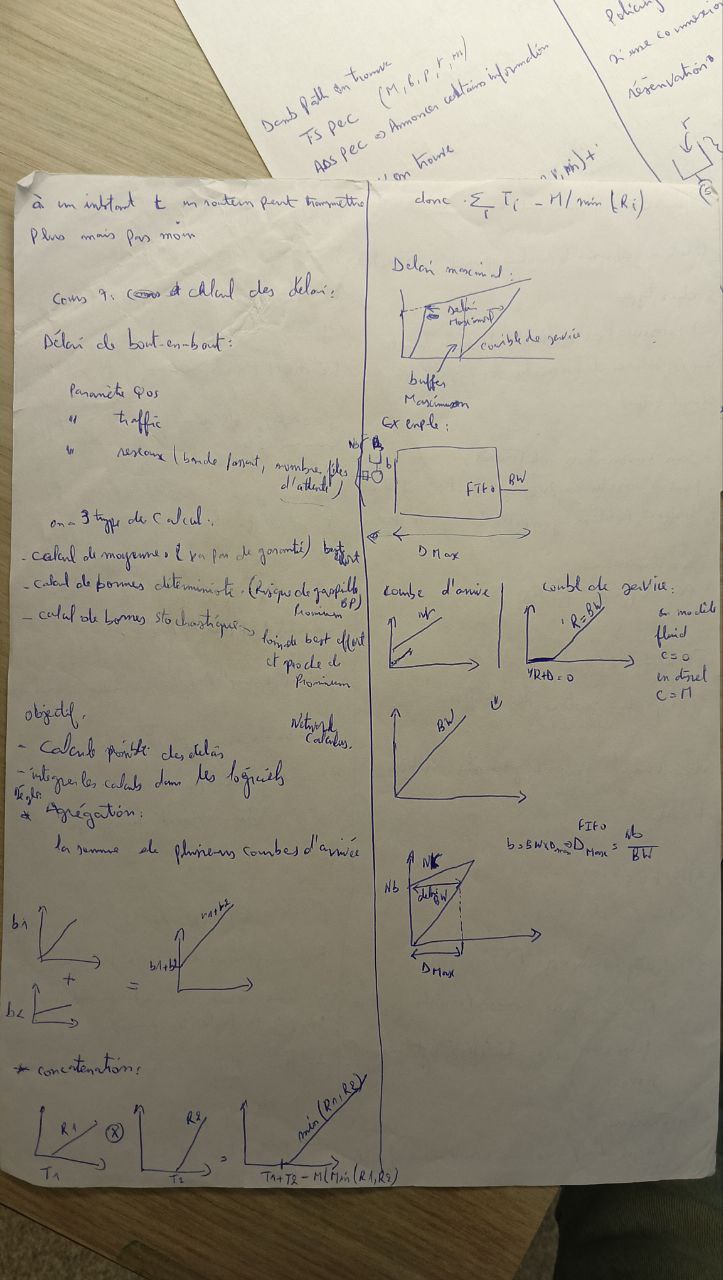 Dans Path on trouve
TSpec (M, b, p, r, m)
ADSpec => Annoncer certains information
on trouve
Policing
si une connexion
réservation
r
à un instant t un routeur peut transmettre
plus mais pas moin
Cours 7: calcul des délai:
Délai de bout-en-bout:
Paramètre QoS
" traffic
" reseaux (bande passant, nombre files
d'attente)
on a 3 type de calcul:
- calcul de moyenne (pas de garantie) best effort
- calcul de bornes déterministe. (Risque de gaspille BP)
Prominum
- calcul de bornes stochastique → loin de best effort
et proche de
Prominum
objectif.
Network
Calculus.
- calcule des délais
- integrer les calculs dans les logiciels
Régle:
* Agrégation:
la somme de plusieurs courbes d'arrivée
b1
+
b2
=
b1+b2
r1+r2
* concatenation:
R1
T1
⊗
R2
T2
=
min(R1,R2)
T1+T2 - M(Min(R1,R2)
donc . ∑i Ti - M/min(Ri)
Delai maximal:
delai
Maximal
courbe de service
buffer
Maximum
Exemple:
Nb
b
FIFO
BW
D Max
courbe d'arrive
courbe de service:
Nr
R=BW
en modèle
fluid
c=0
en
C=M
BW
FIFO
DMax = Nb/BW
Nr
Nb
delai
BW
DMax